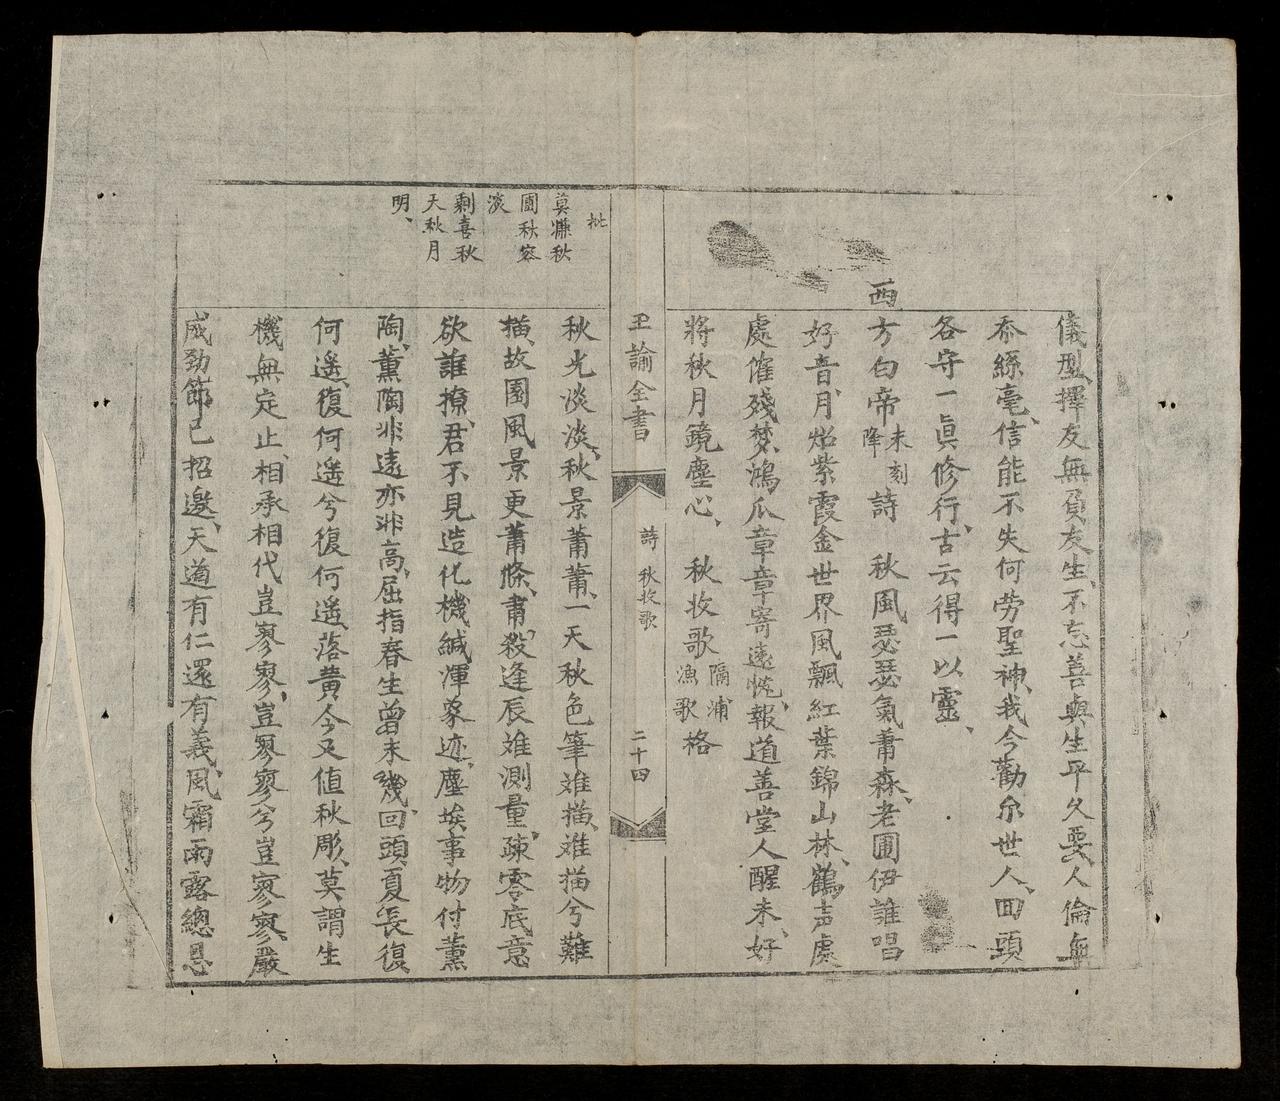 儀型、擇友無負友生、不忘善與生平久要、人倫無
忝絲毫、信能不失何劳聖神、我今勸尔世人、回頭
各守一眞修行、古云得一以靈、
西方白帝未刻降詩　秋風瑟瑟氣蕭森、老圃伊誰唱
好音、月炤紫霞金世界風飄紅葉錦山林、鶴声處
處催殘梦、鴻爪章章寄遠忱、報道善堂人醒未、好
將秋月鏡塵心、　秋收歌隔浦漁歌格
玉諭全書　詩　秋收歌　二十四
批
莫慊秋
圃秋容
淡
剩喜秋
天秋月
明、
秋光淡淡、秋景蕭蕭、一天秋色筆难描、难描兮難
描、故園風景更蕭條、肅殺逢辰难測量、疎零底意
欲誰撩、君不見造化機緘渾豪迹、塵埃事物付薰
陶、薰陶非遠亦非高、屈指春生曾未幾、回頭夏長復
何遥、復何遥兮復何遥、落黄今又值秋彫、莫謂生
機無定止、相承相代豈寥寥、豈寥寥兮豈寥寥、嚴
威勁節已招邀、天道有仁還有義、風霜雨露總恩